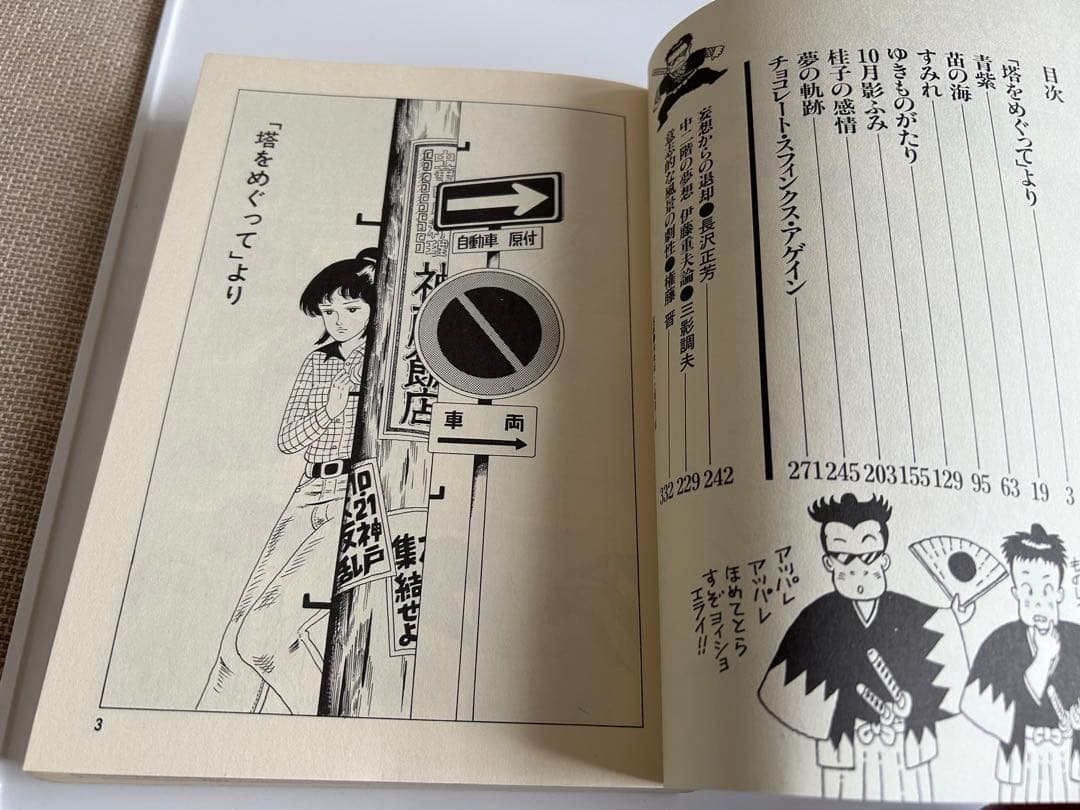 目次
「塔をめぐって」より 3
青紫 19
苗の海 63
すみれ 95
ゆきものがたり 129
10月影ふみ 155
桂子の感情 203
夢の軌跡 245
チョコレート・スフィンクス・アゲイン 271
妄想からの退却●長沢正芳 242
中二階の夢想 伊藤重夫論●三影調夫 229
な風景の劇性●権藤晋 332
アッパレ
アッパレ
ほめてとら
すぞヨイショ
エライ!!
「塔をめぐって」より
中華
理
神
飯店
自動車 原付
車両
10.21神戸
反乱
集結せよ
3